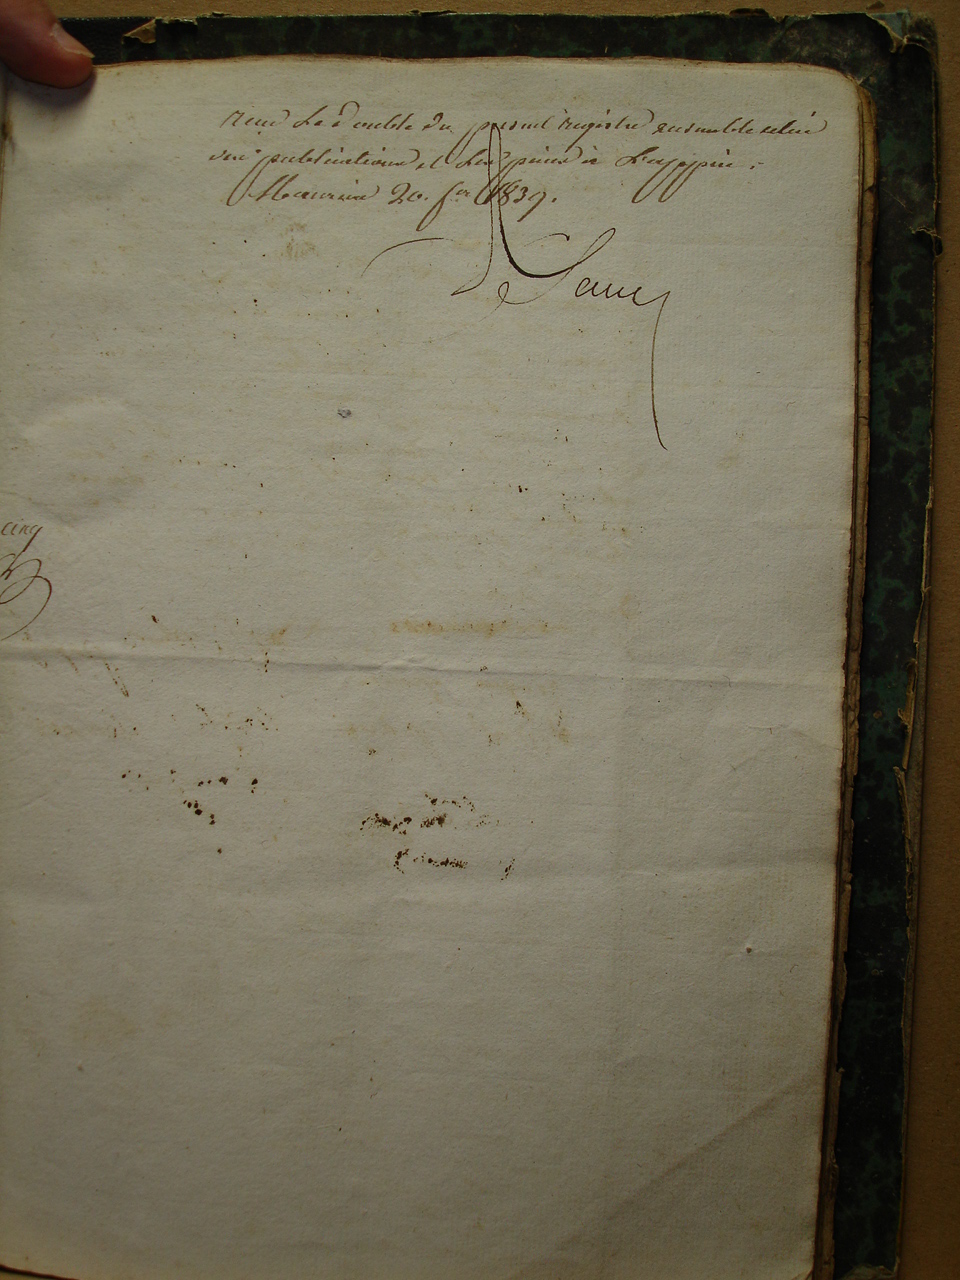 reçu le double du présent registre ensemble celui
des publications et les pièces à l'appui.
Mauriac 20. fer 1839.
De Sauy
cinq